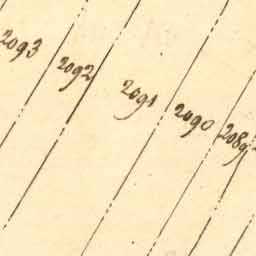 2093
2092
2091
2090
2089